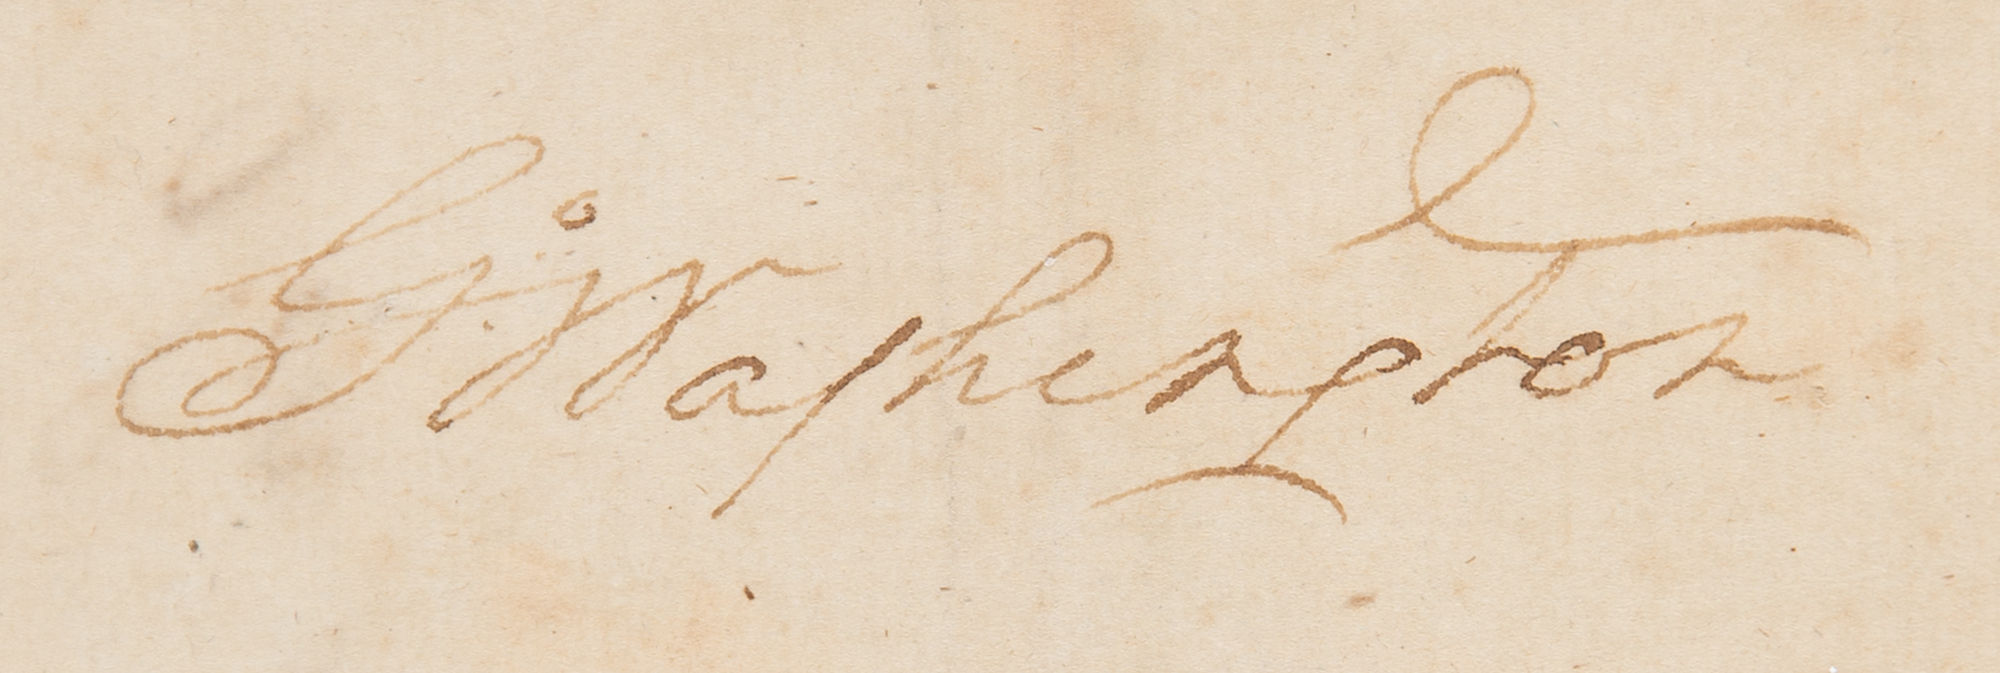 Go: Washington